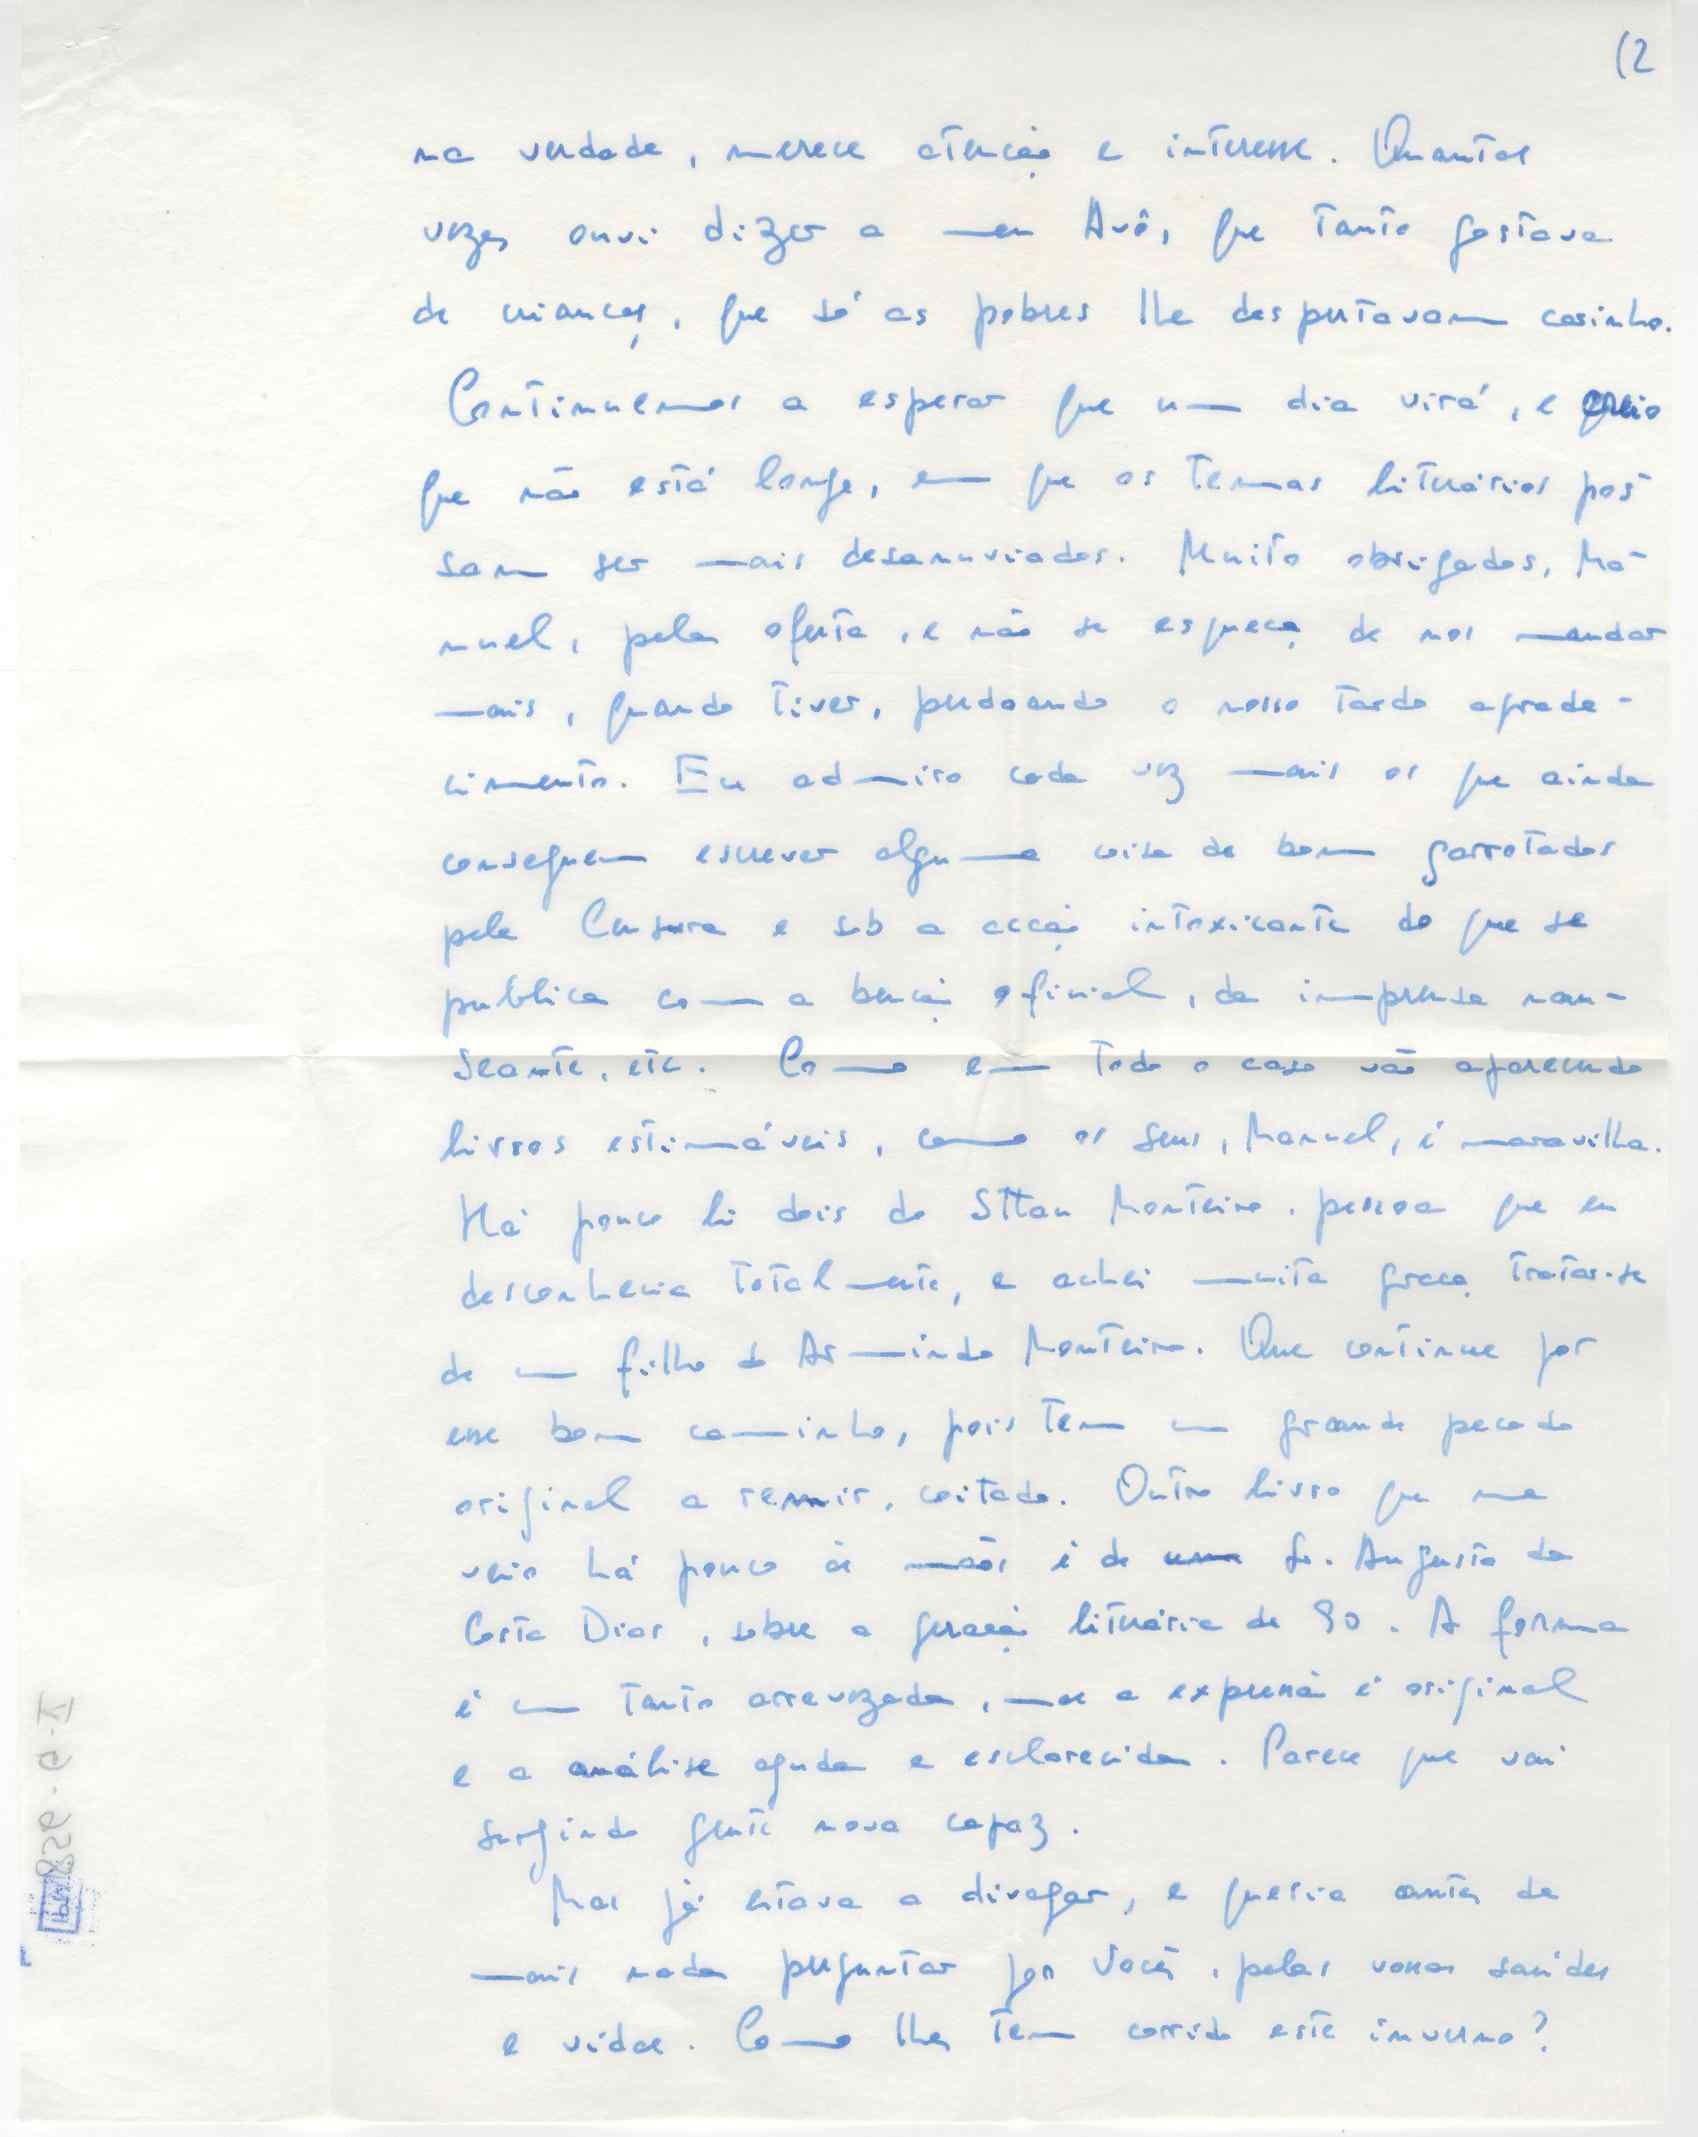 (2
na verdade, merece atenção e interesse. Quantas
vezes ouvi dizer a meu Avô, que tanto gostava
de crianças, que só as pobres lhe despertavam carinho.
Continuemos a esperar que um dia virá, e creio
que não está longe, em que os temas literários pos-
sam ser mais desanuviados. Muito obrigados, Ma-
nuel, pela oferta, e não se esqueça de nos mandar
mais, quando tiver, perdoando o nosso tardo agrade-
cimento. Eu admiro cada vez mais os que ainda
conseguem escrever alguma coisa de bom garrotados
pela Censura e sob a acção intoxicante do que se
publica com a benção oficial, da imprensa nau-
seante, etc. Como em todo o caso vão aparecendo
livros estimáveis, como os seus, Manuel, é maravilha.
Há pouco li dois do Sttau Monteiro, pessoa que eu
desconhecia totalmente, e achei muita graça tratar-se
de um filho do Armindo Monteiro. Que continue por
esse bom caminho, pois tem um grande pecado
original a remir, coitado. Outro livro que me
veio há pouco às mãos é de um Sr. Augusto da
Costa Dias, sobre a geração literária de 90. A forma
é um tanto arrevezada, mas a expressão é original
e a análise aguda e esclarecida. Parece que vai
surgindo gente nova capaz.
Mas já estava a divagar, e queria antes de
mais nada perguntar por Vocês, pelas vossas saúdes
e vidas. Como lhes tem corrido este inverno?